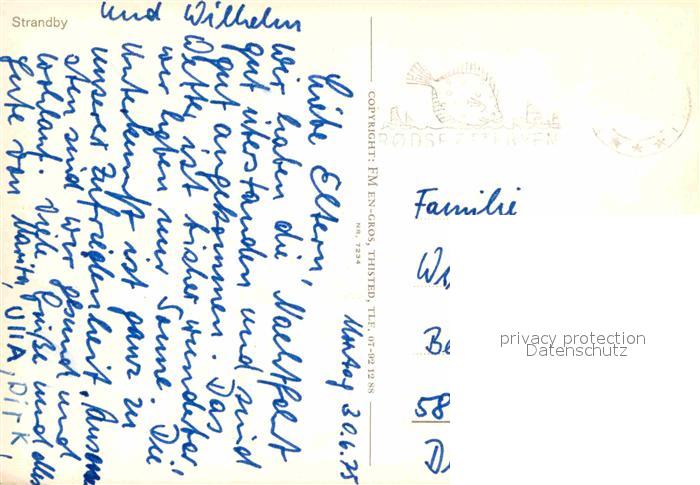 Strandby
Montag 30.6.75
Liebe Eltern,
wir haben die Nachtfahrt
gut überstanden und sind
gut angekommen. Das
Wetter ist bisher wunderbar
wir haben nur Sonne. Die
Unterkunft ist ganz zu
unserer Zufriedenheit. Ansonsten
sind wir gesund und
wohlauf. Viele Grüße und alles
Gute von Marita, Ulla, Dirk,
und Wilhelm
COPYRIGHT: FM EN-GROS, THISTED, TLF. 07-92 12 88
NR. 7234
RØDSPÆTTEBYEN
Familie
58
privacy protection
Datenschutz